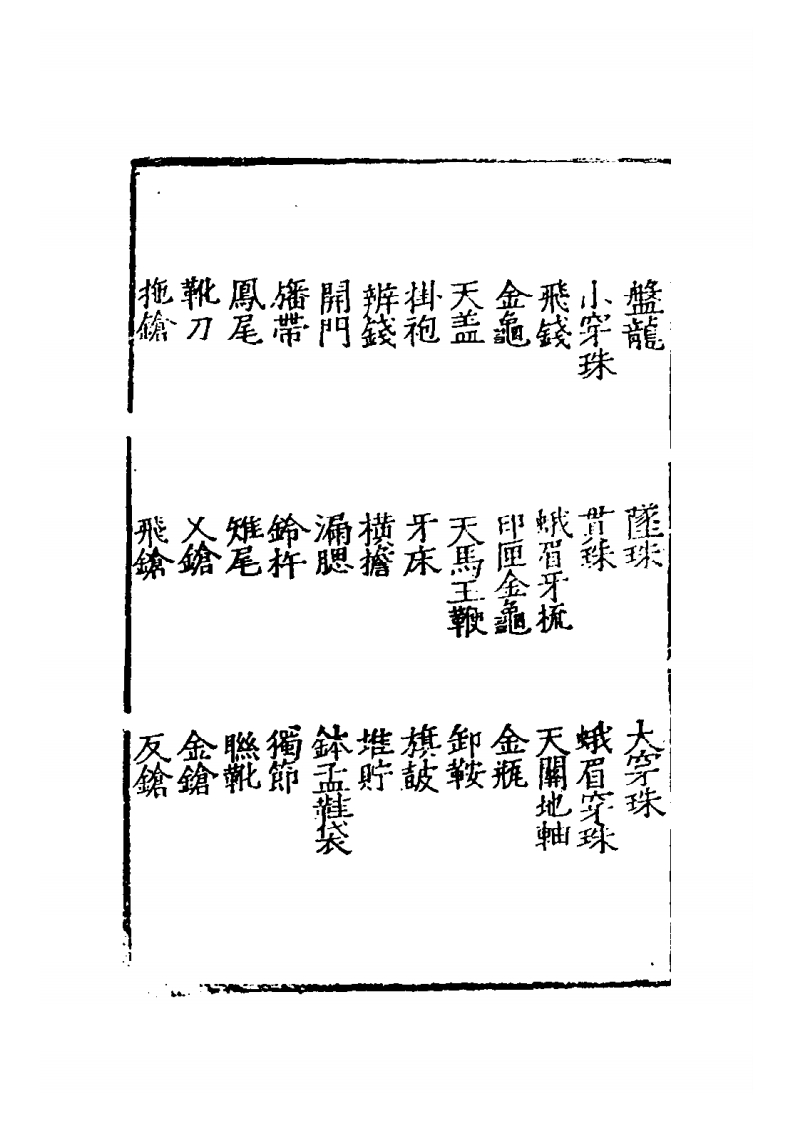 盤龍　墜珠　大穿珠
小穿珠　貫珠　蛾眉穿珠
飛錢　蛾眉牙梳　天關地軸
金龜　印匣金龜　金瓶
天盖　天馬王鞭　卸鞍
掛袍　牙床　旗鼓
辨錢　橫擔　堆貯
開門　漏腮　鉢盂鞋袋
旛帶　鈴杵　獨節
鳳尾　雉尾　聮靴
靴刀　乂鎗　金鎗
拖鎗　飛鎗　反鎗